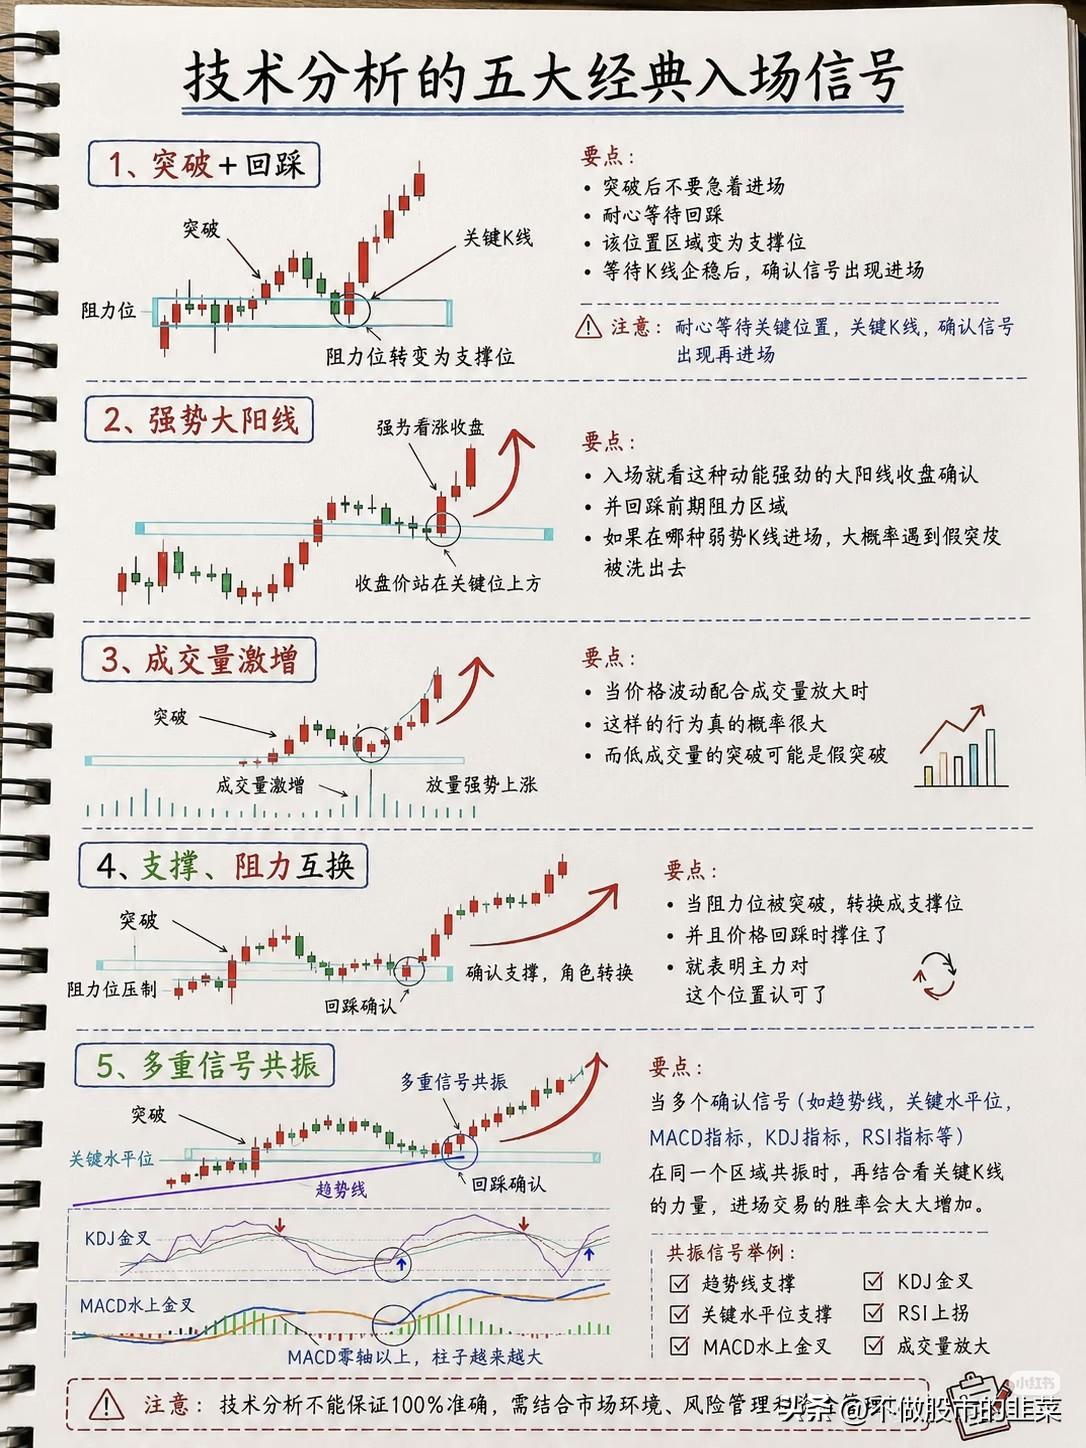 技术分析的五大经典入场信号
1、突破+回踩
突破
关键K线
阻力位
阻力位转变为支撑位
要点：
• 突破后不要急着进场
• 耐心等待回踩
• 该位置区域变为支撑位
• 等待K线企稳后，确认信号出现进场
注意：耐心等待关键位置，关键K线，确认信号
出现再进场
2、强势大阳线
强势看涨收盘
收盘价站在关键位上方
要点：
• 入场就看这种动能强劲的大阳线收盘确认
• 并回踩前期阻力区域
• 如果在哪种弱势K线进场，大概率遇到假突
被洗出去
3、成交量激增
突破
成交量激增
放量强势上涨
要点：
• 当价格波动配合成交量放大时
• 这样的行为真的概率很大
• 而低成交量的突破可能是假突破
4、支撑、阻力互换
突破
阻力位压制
回踩确认
确认支撑，角色转换
要点：
• 当阻力位被突破，转换成支撑位
• 并且价格回踩时撑住了
• 就表明主力对
这个位置认可了
5、多重信号共振
多重信号共振
突破
关键水平位
趋势线
回踩确认
KDJ金叉
MACD水上金叉
MACD零轴以上，柱子越来越大
要点：
当多个确认信号（如趋势线，关键水平位，
MACD指标，KDJ指标，RSI指标等）
在同一个区域共振时，再结合看关键K线
的力量，进场交易的胜率会大大增加。
共振信号举例：
☑ 趋势线支撑
☑ KDJ金叉
☑ 关键水平位支撑
☑ RSI上拐
☑ MACD水上金叉
☑ 成交量放大
注意：技术分析不能保证100%准确，需结合市场环境、风险管理
小红书
头条 @不做股市的韭菜